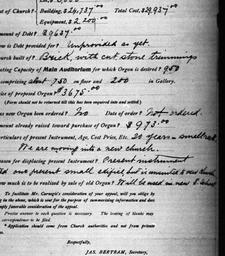 of Church? Building, $24,737.00 Total Cost, $29,937.00
Equipment, $2 200.00
mount of Debt? $9637.00
is Debt provided for? Unprovided as yet.
urch built of? Brick, with cut stone trimmings
ating Capacity of Main Auditorium for which Organ is desired? 950
comprising about 750 on floor and 200 in Gallery.
rice of proposed Organ? $3675.00
(Form should not be returned till this has been enquired into and settled.)
new Organ been Ordered? No Date of order? Not ordered.
mount already raised toward purchase of Organ? $973.00
articulars of present Instrument, Age, Cost Price, Etc. 20 years - small
We are moving into a new church.
eason for displacing present Instrument? Present instrument
old one present small
ow much is to be realized by sale of old Organ? Will be used in new
To facilitate Mr. Carnegie's consideration of your appeal, will you oblige by
in the above, which is sent for the purpose of summarizing information and does
imply favorable consideration of the appeal.
Precise answer to each question is necessary. The leaving of blanks may
correspondence to be filed.
* Application should come from Church authorities and not from private
Respectfully,
JAS. BERTRAM, Secretary,